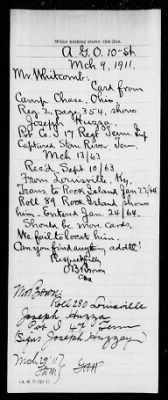 Write nothing above this line.
A.G.O. 10-Sh
Mch 9, 1911.
Mr. Whitcomb:
Card from
Camp Chase, Ohio
Reg 2, page 354, shows
Joseph Huzza
Pvt Co I 17 Regt Tenn Inf
Captured Stone River Tenn.
Mch 13/63
Rec'd Sept 10/63
From Louisville, Ky.
Trans to Rock Island Jan 22/64
Roll 89 Rock Island shows
him
Jan 24/64.
Should be more cards,
We fail to locate him.
Can you find anything addtl?
Respectfully
Mr Brown:
Roll 280 Louisville
Joseph Huzza
Pvt I 47 Tenn
(Signs Joseph Huzzey)
Mch 29 '11